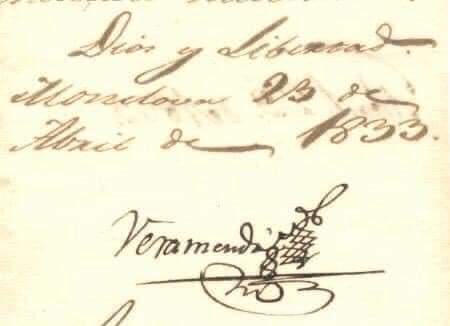 Dios y Libertad.
Monclova 23 de
Abril de 1833.
Veramendi